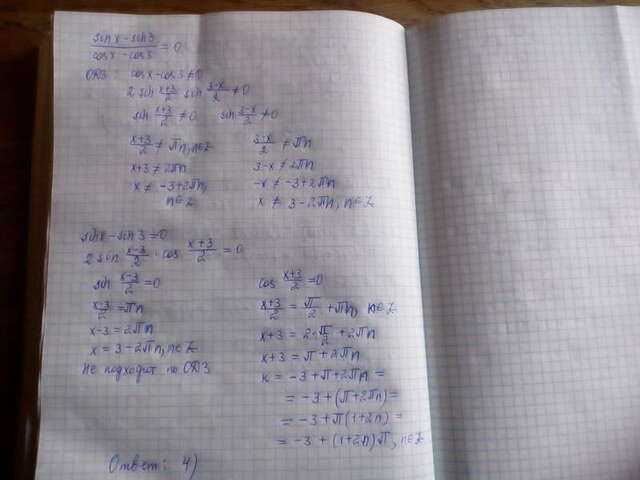 sin x - sin 3 / cos x - cos 3 = 0
ОДЗ: cos x - cos 3 ≠ 0
2 sin x+3/2 sin 3-x/2 ≠ 0
sin x+3/2 ≠ 0 sin 3-x/2 ≠ 0
x+3/2 ≠ πn, n∈Z 3-x/2 ≠ πn
x+3 ≠ 2πn 3-x ≠ 2πn
x ≠ -3+2πn, -x ≠ -3+2πn
n∈Z x ≠ 3-2πn, n∈Z
sin x - sin 3 = 0
2 sin x-3/2 · cos x+3/2 = 0
sin x-3/2 = 0 cos x+3/2 = 0
x-3/2 = πn x+3/2 = π/2 + πn, n∈Z
x-3 = 2πn x+3 = 2·π/2 + 2πn
x = 3-2πn, n∈Z x+3 = π+2πn
Не подходит по ОДЗ x = -3+π+2πn =
= -3+(π+2πn) =
= -3+π(1+2n) =
= -3+(1+2n)π, n∈Z
Ответ: 4)